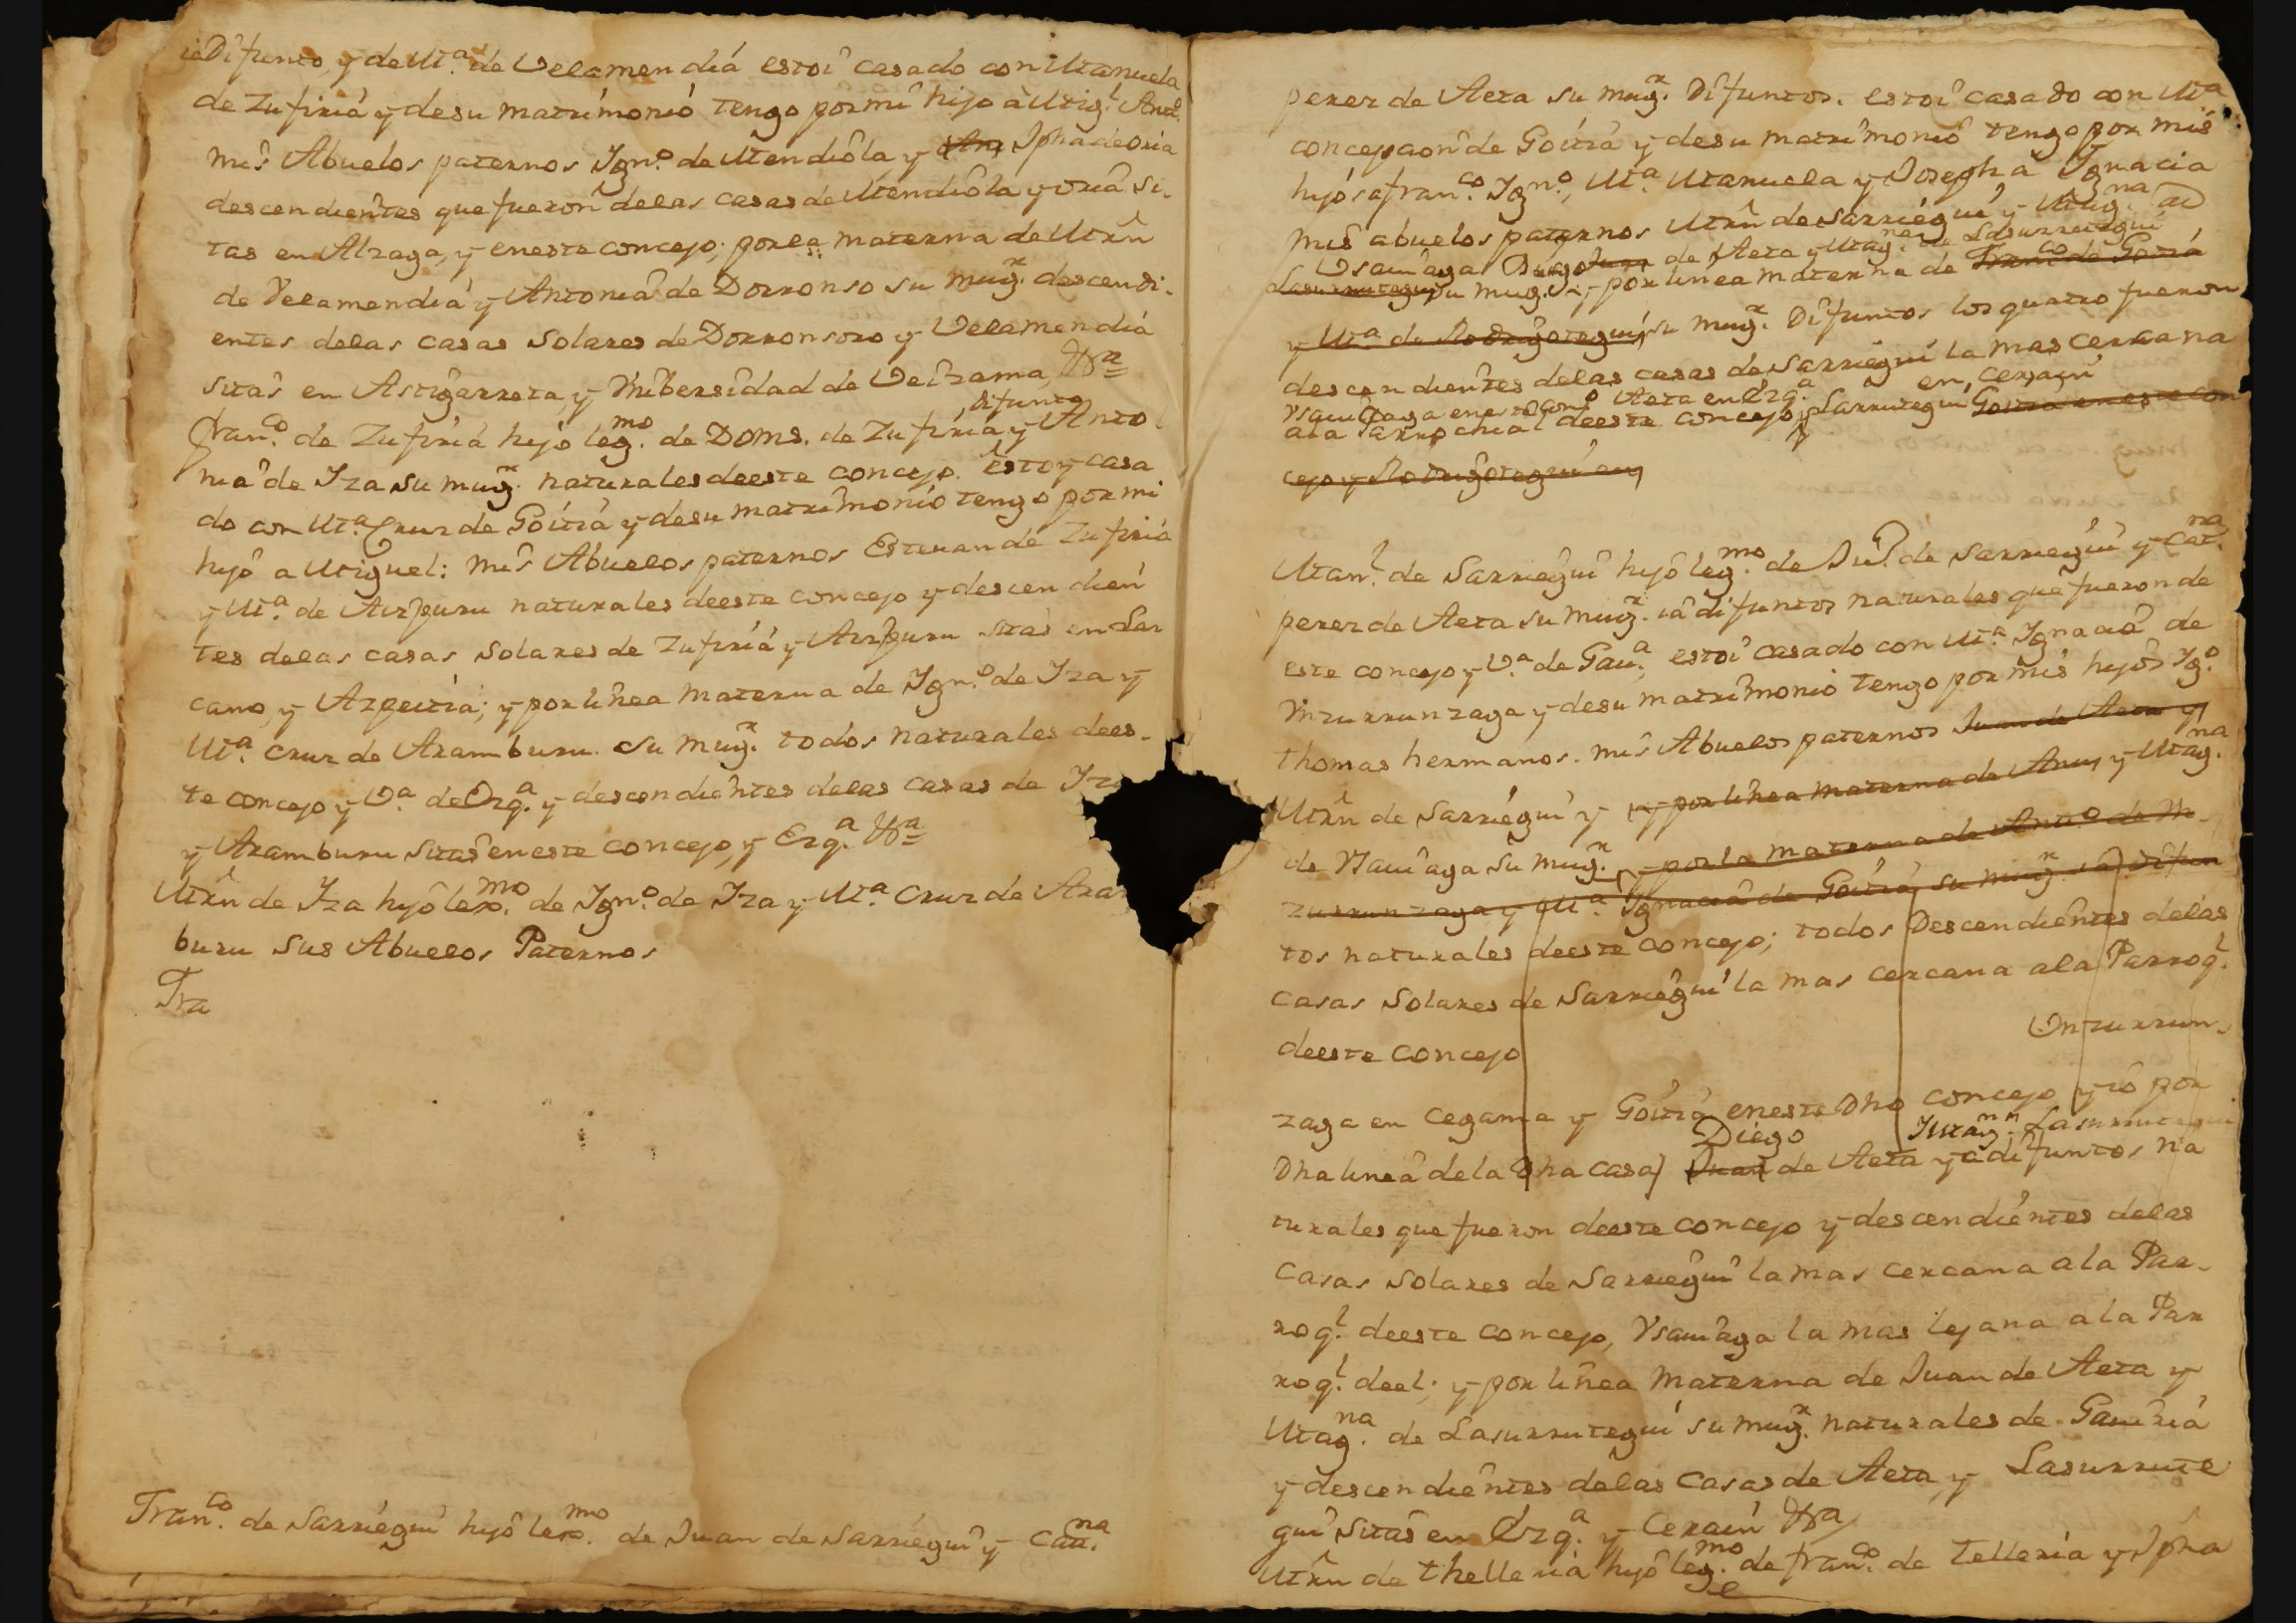 ia Difunto, y de M.ª de Velamendiá estoi casado con Manuela
de Zufiriá y de su matrimonió tengo por mi hijo a Mig.l Ant.
mis Abuelos paternos Ign.o de Mendiola y Jpha de oria
descendientes que fueron de las casas de Mendiola y oria si-
tas en Alzaga, y en este concejo; por la materna de Mrn
de Velamendiá y Antonia de Dorronso su mug.r descendi-
entes de las casas Solares de Dorronsoro y Velamendiá
sitas en Astigarreta, y Vnibersidad de Veizama,
Fran.co de Zufiriá hijo leg.mo de Doms. de Zufiria difunto y Anto
nia de Iza su mug.r naturales de este concejo. estoy casa
do con M.ª Cruz de Goitiá y de su matrimonio tengo por mi
hijo a Miguel: mis Abuelos paternos Estevan de Zufiriá
y M.ª de Aizpuru naturales de este concejo y descendien
tes de las casas Solares de Zufiriá y Aizpuru sitas en Laz
cano, y Azpeitiá; y por linea Materna de Ign.o de Iza y
M.ª cruz de Aramburu su mug.r todos naturales de es-
te concejo y V.ª de Ozq.ª y descendientes de las casas de Iza
y Aramburu sitas en este concejo, y Ezq.ª
Mrn de Iza hijo lex.mo de Ign.o de Iza y M.ª Cruz de Aram
buru sus Abuelos Paternos
Fra
Fran.co de Sarriegui hijo lex.mo de Juan de Sarriegui y Catt.na
perez de Aeta su mug.r Difuntos. estoi casado con M.ª
concepcon de Goitiá y de su matrimonio tengo por mis
hijos a fran.co Ign.o, M.ª Manuela y Josepha Ignacia
mis abuelos paternos Mrn de Sarriegui y Mag.na de
Vsauiaga Diego Juan de Aeta y Mag.na de Lasurrutegui
Lasurrutegui su mug.r y por linea materna de Fran.co de Goitiá
y M.ª de Rodrigotegui, su mug.r Difuntos los quatro fueron
descendientes de las casas de Sarriegui la mas cercana
Ysauiaga en este con.o Aeta en Ezq.ª en Cerain
a la Parrochial de este concejo, y Lasurrutegui Goitia en este con
cejo y Rodrigotegui en
Man.l de Sarriegui hijo leg.mo de Ju.o de Sarriegui y Cat.na
perez de Aeta su mug.r ia difuntos naturales que fueron de
este concejo y V.ª de Gau.ª, estoi casado con M.ª Ignacia de
Vnzurrunzaga y de su matrimonio tengo por mis hijos Ig.o
thomas hermanos. mis Abuelos paternos Juan de Aeta y
Mrn de Sarriegui y y por linea materna de Anu y Mag.na
de Ysauiaga su mug.r y por la materna de Ant.o de Vn-
zurrunzaga y M.ª Ignacia de Goitiá su mug.r ia difun
tos naturales de este concejo; todos Descendientes de las
casas Solares de Sarriegui la mas cercana a la Parroq.l
de este concejo Vnzurrun-
zaga en Cegama y Goitiá en este Dho concejo y io por
Dha linea de la Dha casa Juan Diego de Aeta y Mag.na Lasurrutegui ia difuntos na
turales que fueron de este concejo y descendientes de las
Casas Solares de Sarriegui la mas cercana a la Par-
roq.l de este concejo, Ysauiaga la mas lejana a la Par
roq.l de el; y por linea Materna de Juan de Aeta y
Mag.na de Lasurrutegui su mug.r naturales de Gauiriá
y descendientes de las Casas de Aeta, y Lasurrute
gui sitas en Ezq.ª y Cerain
Mrn de thelleria hijo leg.mo de fran.co de Telleria y Jpha